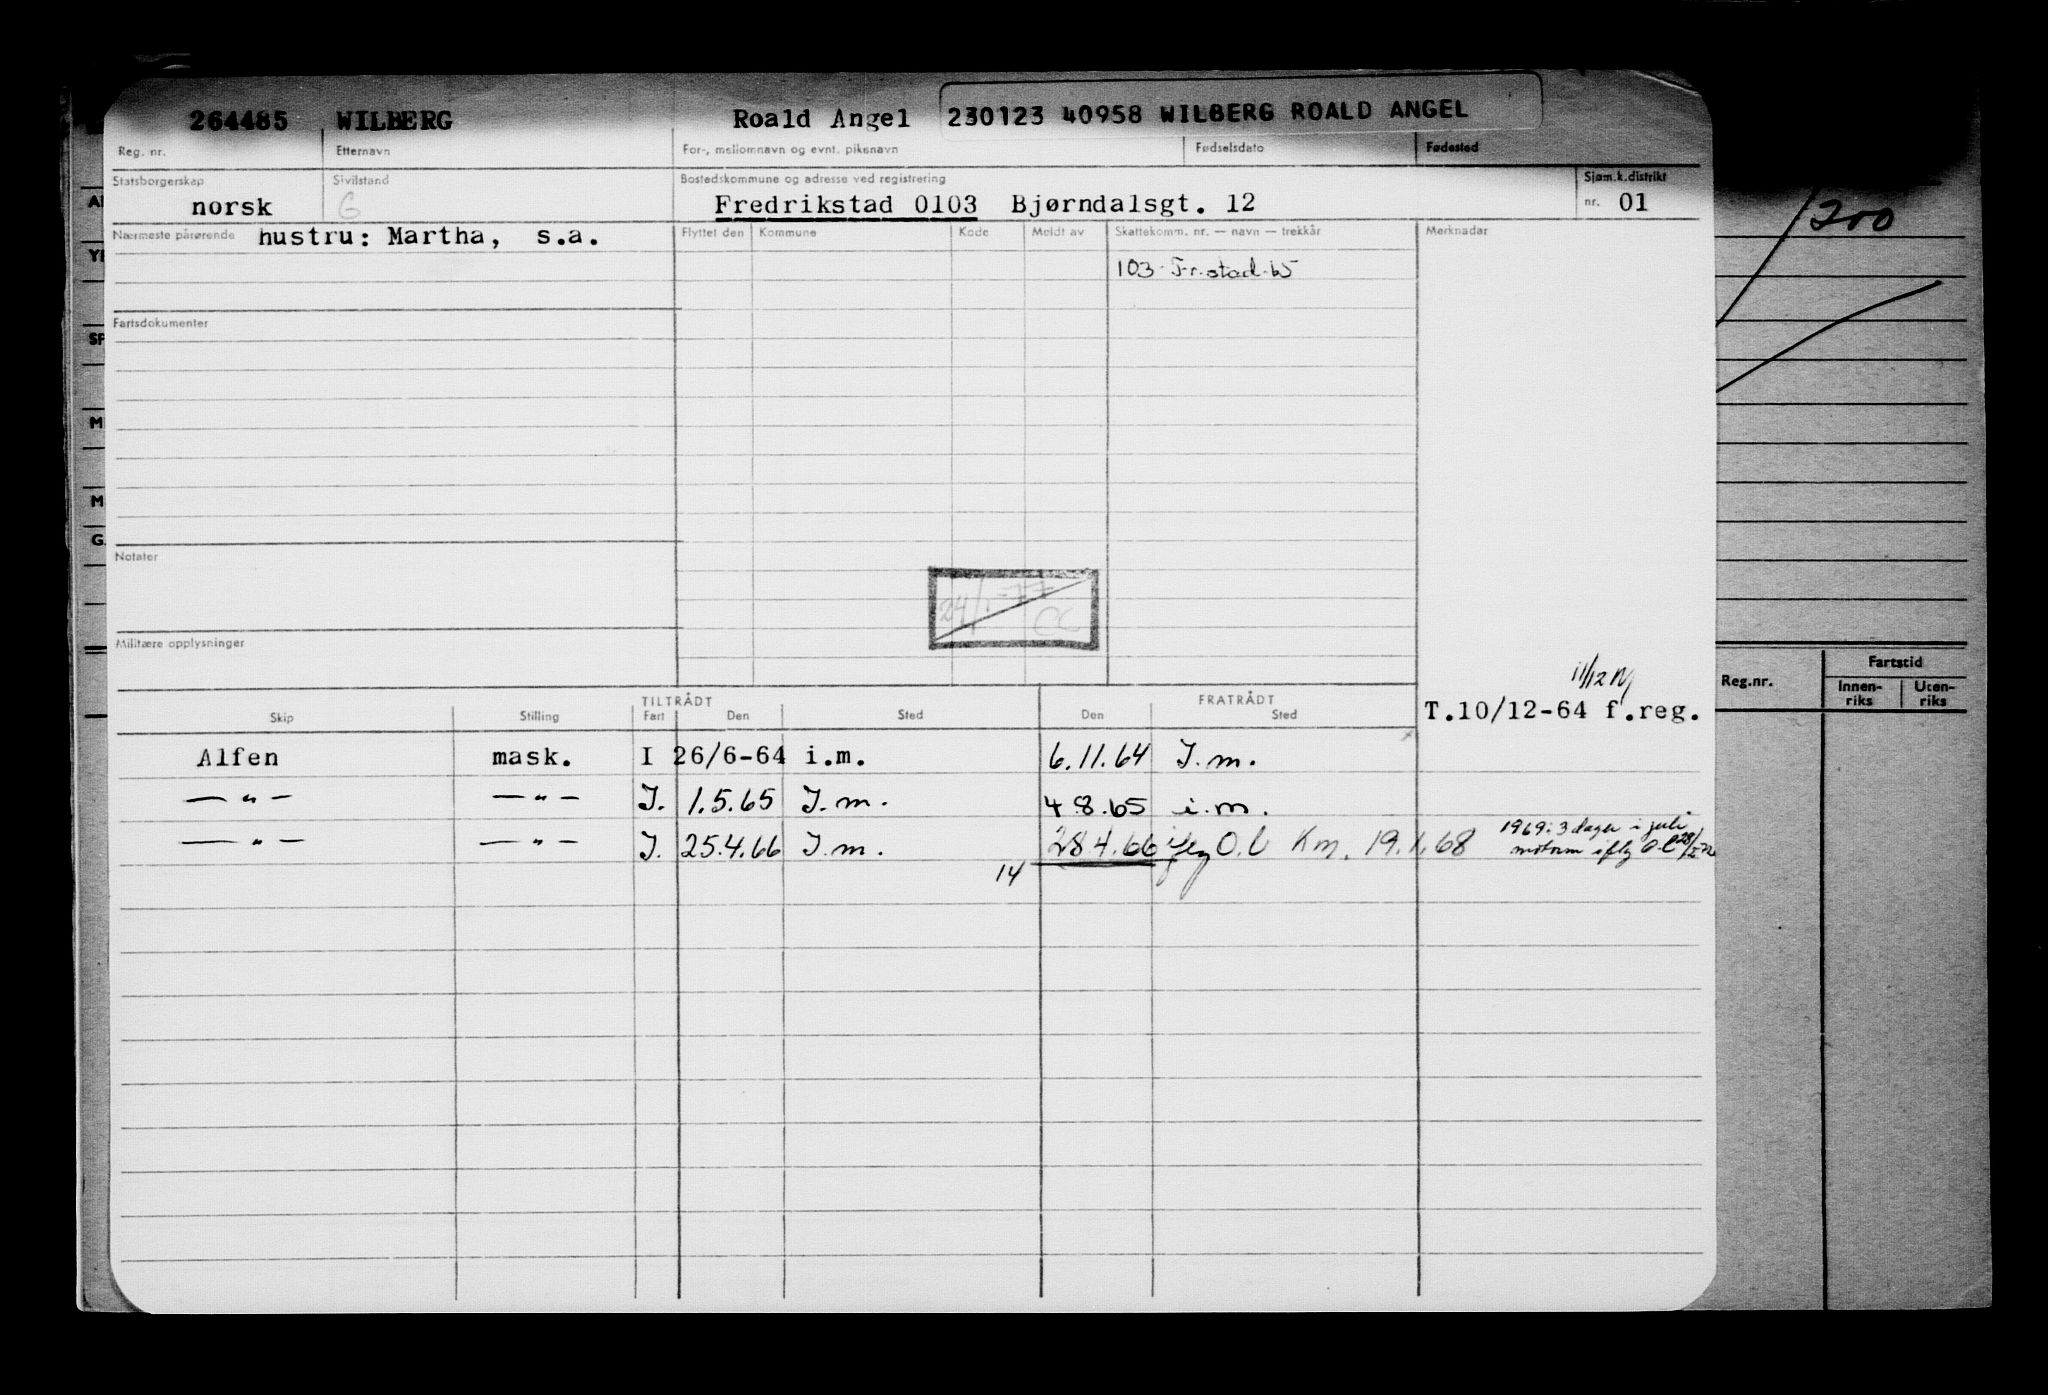 264485 WILBERG Roald Angel 230123 40958 WILBERG ROALD ANGEL
Reg. nr. Etternavn For-, mellomnavn og evnt. pikenavn Fødselsdato Fødested
Statsborgerskap Sivilstand Bostedskommune og adresse ved registrering Sjøm.k.distrikt
norsk G Fredrikstad 0103 Bjørndalsgt. 12 nr. 01
Nærmeste pårørende hustru: Martha, s.a. Flyttet den Kommune Kode Meldt av Skattekomm. nr. — navn — trekkår Merknader
103 - Fr.stad - 65
200
Fartsdokumenter
Notater
24/1-77
CC
Militære opplysninger
11/12
TILTRÅDT FRATRÅDT
Skip Stilling Fart Den Sted Den Sted
T.10/12-64 f.reg.
Alfen mask. I 26/6-64 i.m. 6.11.64 I.m.
— " — — " — I. 1.5.65 I.m. 4 8.65 i.m.
— " — — " — I. 25.4.66 I.m. 28 4.66 O.l Km. 19.1.68
1969: 3 dager i juli
14
AD
YR
SP
M
M
G
Reg.nr. Fartstid
Innen-riks Uten-riks